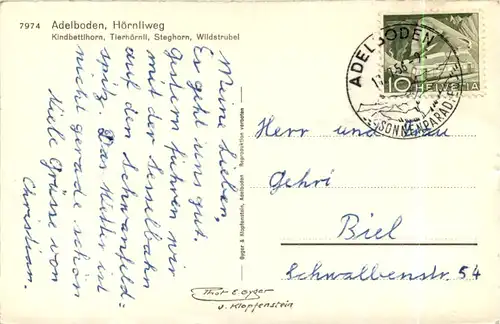 7974 Adelboden, Hörnliweg
Kindbettihorn, Tierhörnli, Steghorn, Wildstrubel
Meine Lieben,
Es geht uns gut.
Gestern fuhren wir
mit der Sesselbahn
auf den Schwandfeld-
spitz. Das Wetter ist
nicht gerade schön
Viele Grüsse von
Christian.
Gyger & Klopfenstein, Adelboden Reproduktion verboten
ADELBODEN
SONNENPARAD
10 HELVETIA
Herr und Frau
Gehri
Biel
Schwalbenstr. 54
Phot E. Gyger
u. Klopfenstein